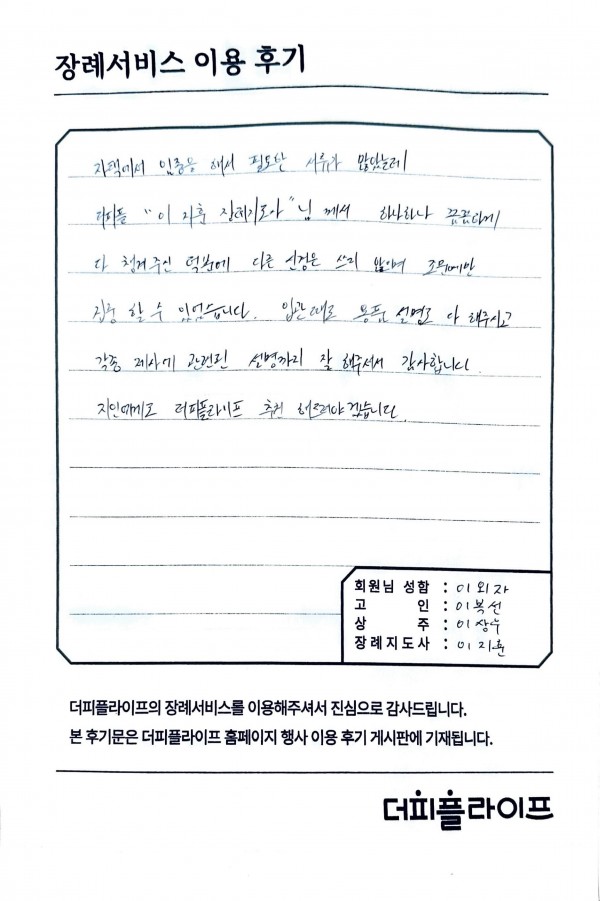 장례서비스 이용 후기
자택에서 임종을 해서 필요한 서류가 많았는데
더피플 "이지훈 장례지도사"님께서 하나하나 꼼꼼하게
다 챙겨주신 덕분에 다른 신경은 쓰지 않으며 조문에만
집중 할 수 있었습니다. 입관때도 용품 설명도 다 해주시고
각종 제사에 관련된 설명까지 잘 해주셔서 감사합니다.
지인에게도 더피플라이프 추천 해드려야겠습니다.
회원님 성함 : 이외자
고 인 : 이복선
상 주 : 이상수
장례지도사 : 이지훈
더피플라이프의 장례서비스를 이용해주셔서 진심으로 감사드립니다.
본 후기문은 더피플라이프 홈페이지 행사 이용 후기 게시판에 기재됩니다.
더피플라이프